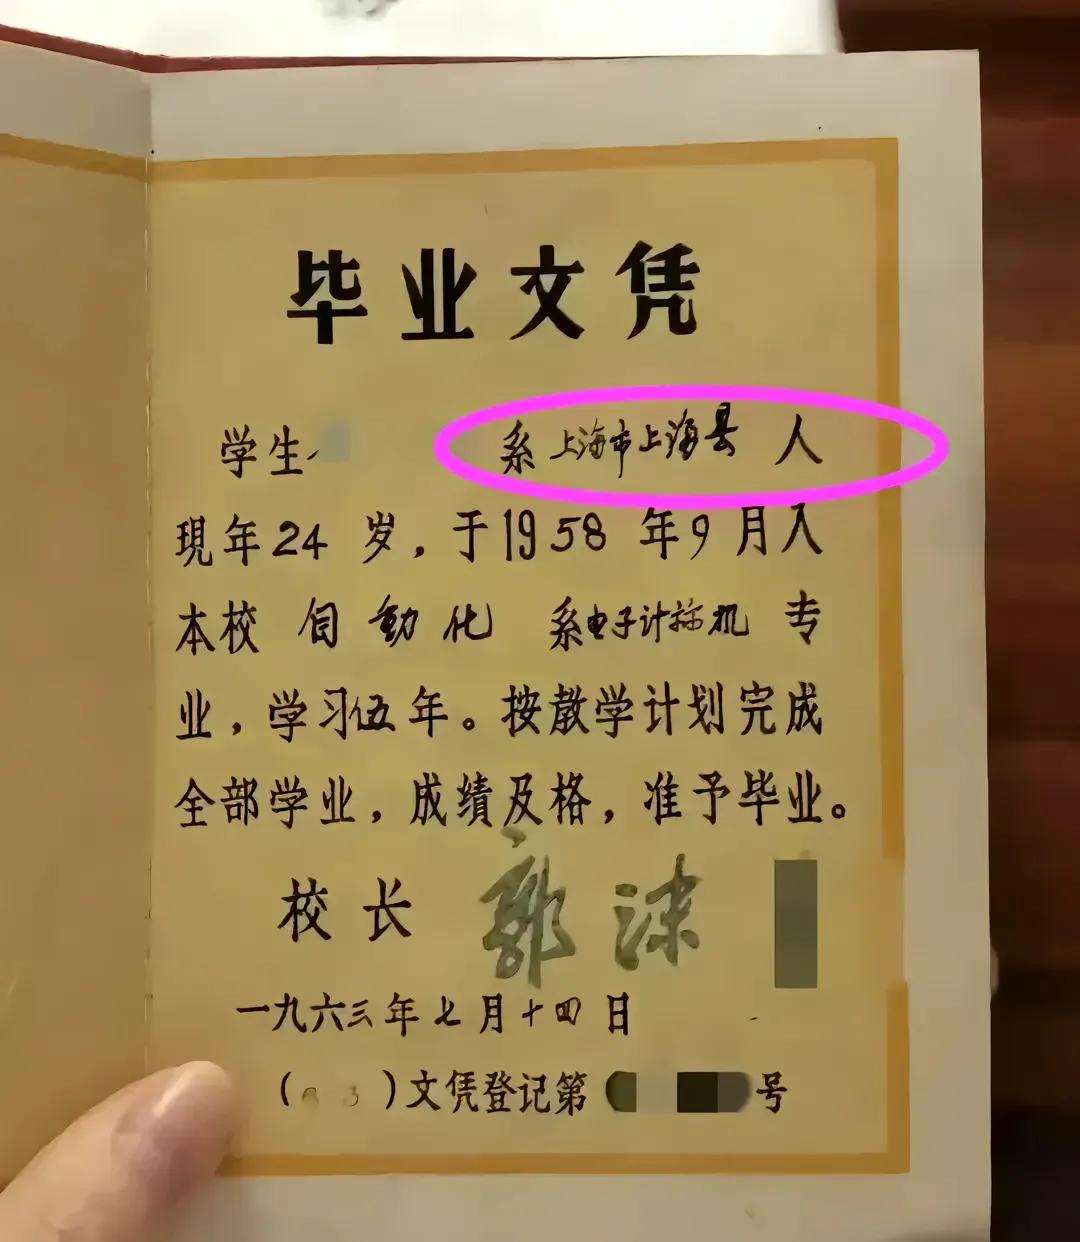 毕业文凭
学生 系上海市上海县 人
現年24 岁，于1958 年9月入
本校 自動化 系电子计祘机 专
业，学习伍年。按教学计划完成
全部学业，成绩及格，准予毕业。
校长 郭沫
一九六三年七月十四日
(63)文凭登记第 号